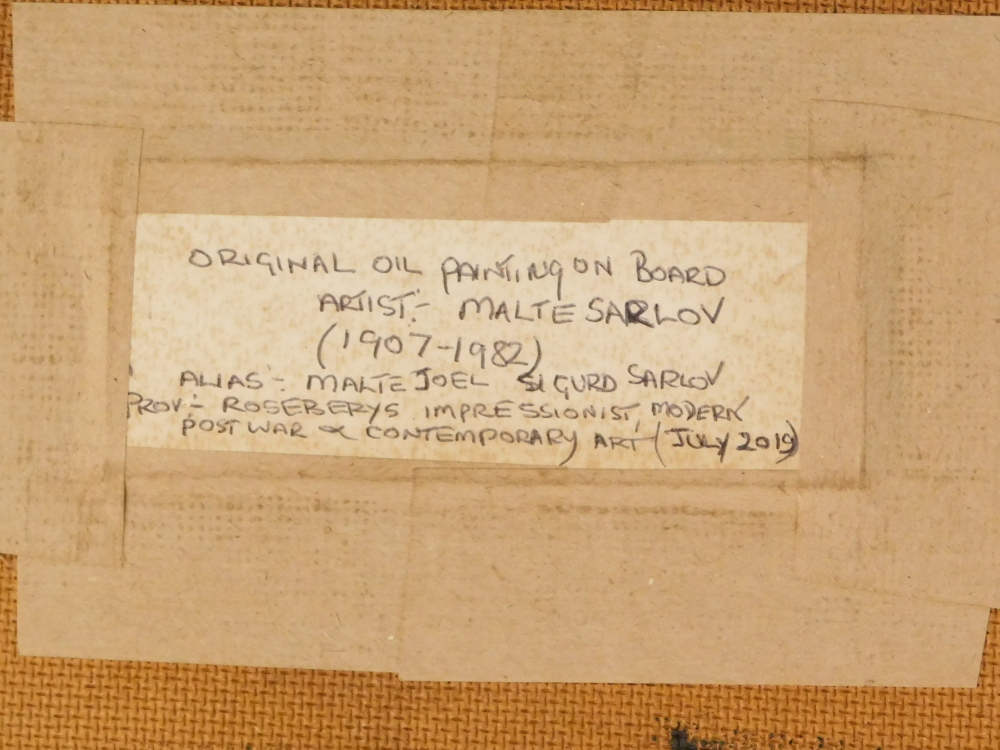 ORIGINAL OIL PAINTING ON BOARD
ARTIST:- MALTE SARLOV
(1907-1982)
ALIAS:- MALTE JOEL SIGURD SARLOV
PROV:- ROSEBERYS IMPRESSIONIST, MODERN
POST WAR & CONTEMPORARY ART (JULY 2019)